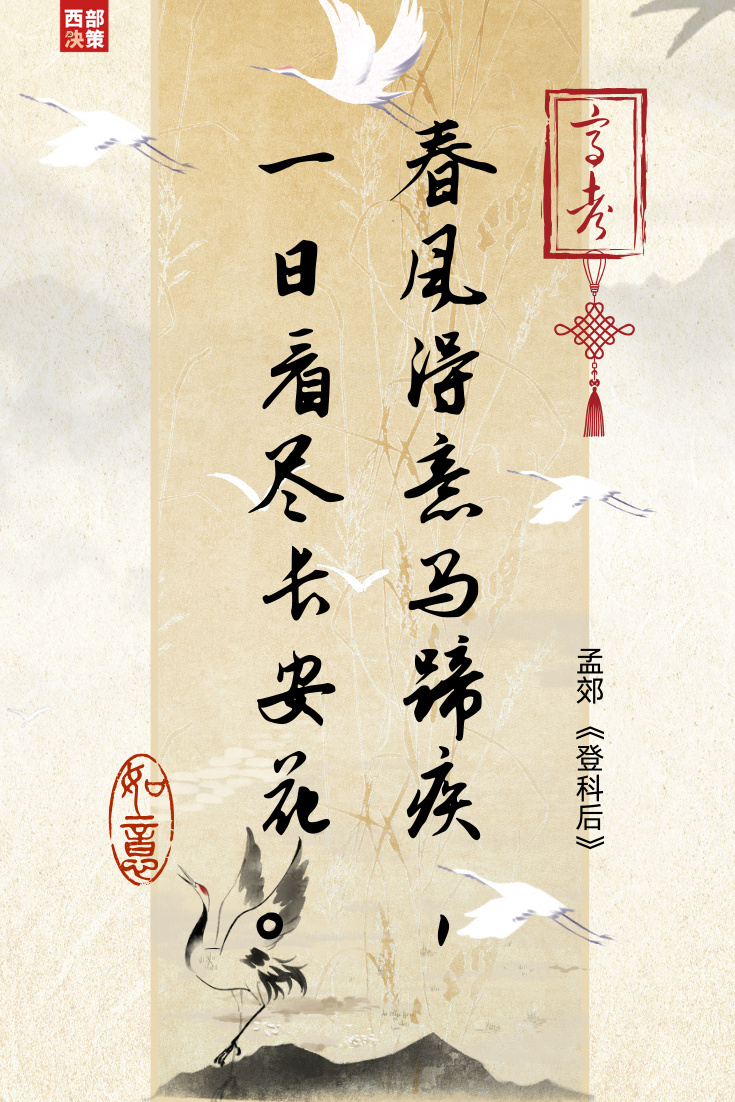 西部
决策
高考
春风得意马蹄疾，
一日看尽长安花。
孟郊《登科后》
如意